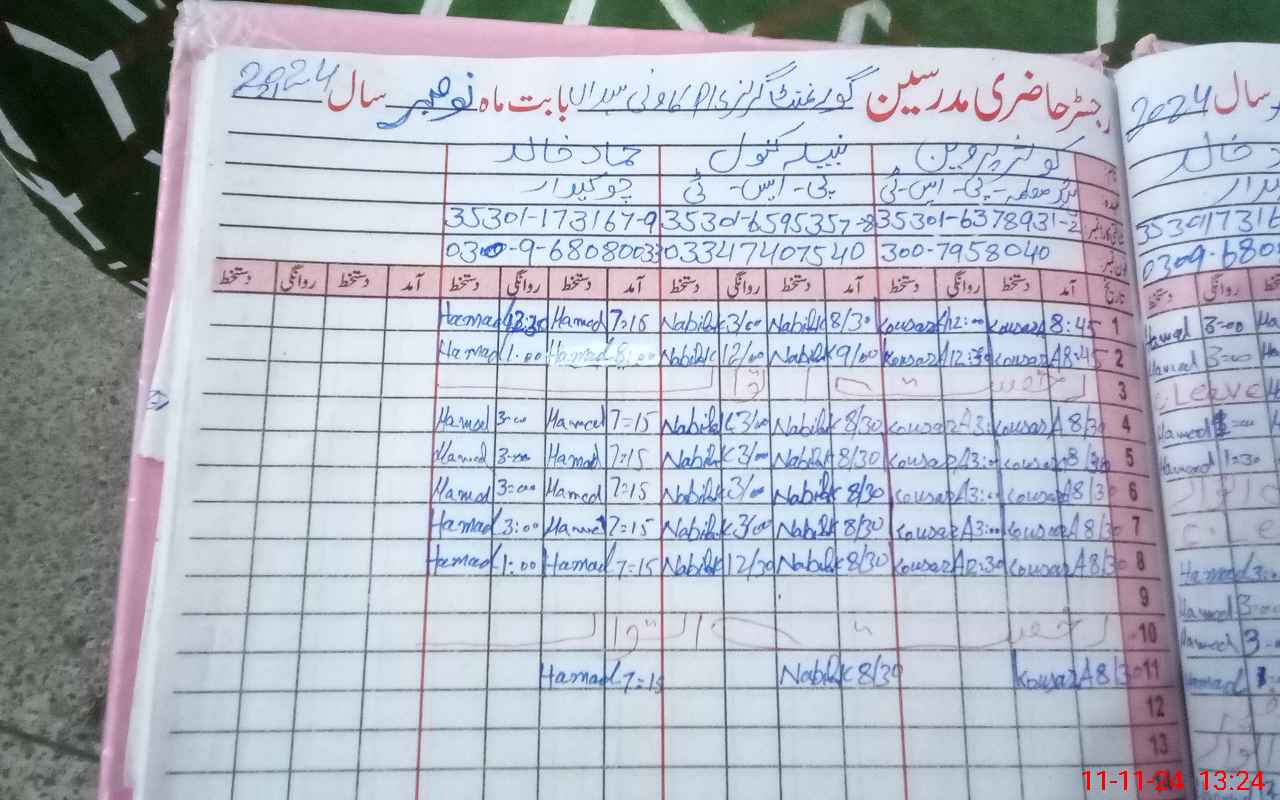 رجسٹر حاضری مدرسین گورنمنٹ گرلز P/I کالونی سیداں بابت ماہ نومبر سال 2024
کوثر پروین نبیلہ کنول حماد خالد
پی۔ ایس۔ ٹی پی۔ ایس۔ ٹی چوکیدار
35301-6378931-2 35301-6595357-8 35301-173167-9
300-7958040 03347407540 0300-9-6808003
تاریخ آمد دستخط روانگی دستخط آمد دستخط روانگی دستخط آمد دستخط روانگی دستخط آمد دستخط روانگی دستخط
1 8:45 KousarA 12:00 KousarA 8/30 NabilK 3/00 NabilK 7=15 Hamad Hamad
2 8:45 KousarA 12:30 KousarA 9/00 NabilK 12/00 NabilK 8:00 Hamad 1:00 Hamad
3 رخصت اتوار
4 8/30 KousarA 3:00 KousarA 8/30 NabilK 3/00 NabilK 7=15 Hamad 3=00 Hamad
5 8/30 KousarA 3:00 KousarA 8/30 NabilK 3/00 NabilK 7=15 Hamad 3=00 Hamad
6 8/30 KousarA 3:00 KousarA 8/30 NabilK 3/00 NabilK 7=15 Hamad 3=00 Hamad
7 8/30 KousarA 3:00 KousarA 8/30 NabilK 3/00 NabilK 7=15 Hamad 3:00 Hamad
8 8/30 KousarA 12:30 KousarA 8/30 NabilK 12/30 NabilK 7=15 Hamad 1:00 Hamad
9
10 رخصت اتوار
11 8/30 KousarA 8/30 NabilK 7=15 Hamad
12
13
سال 2024
خالد
0309-680
روانگی دستخط
Hamad 3=00
Hamad 3=00
Leave
Hamad
Hamad 1:30
اتوار
Hamad 3:00
Hamad 3=00
Hamad 3
Hamad
اتوار
11-11-24 13:24